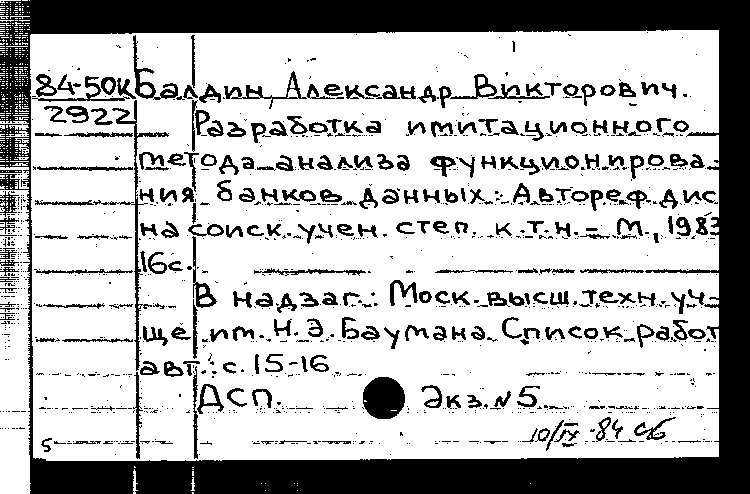 84-50к Балдин, Александр Викторович.
2922 Разработка имитационного
метода анализа функционирова-
ния банков данных: Автореф. дис
на соиск. учен. степ. к.т.н. - М., 1983
16с.
В надзаг.: Моск. высш. техн. уч-
ще им. Н.Э. Баумана. Список работ
авт.: с. 15-16.
ДСП. Экз. № 5
10/IX-84 сб
5